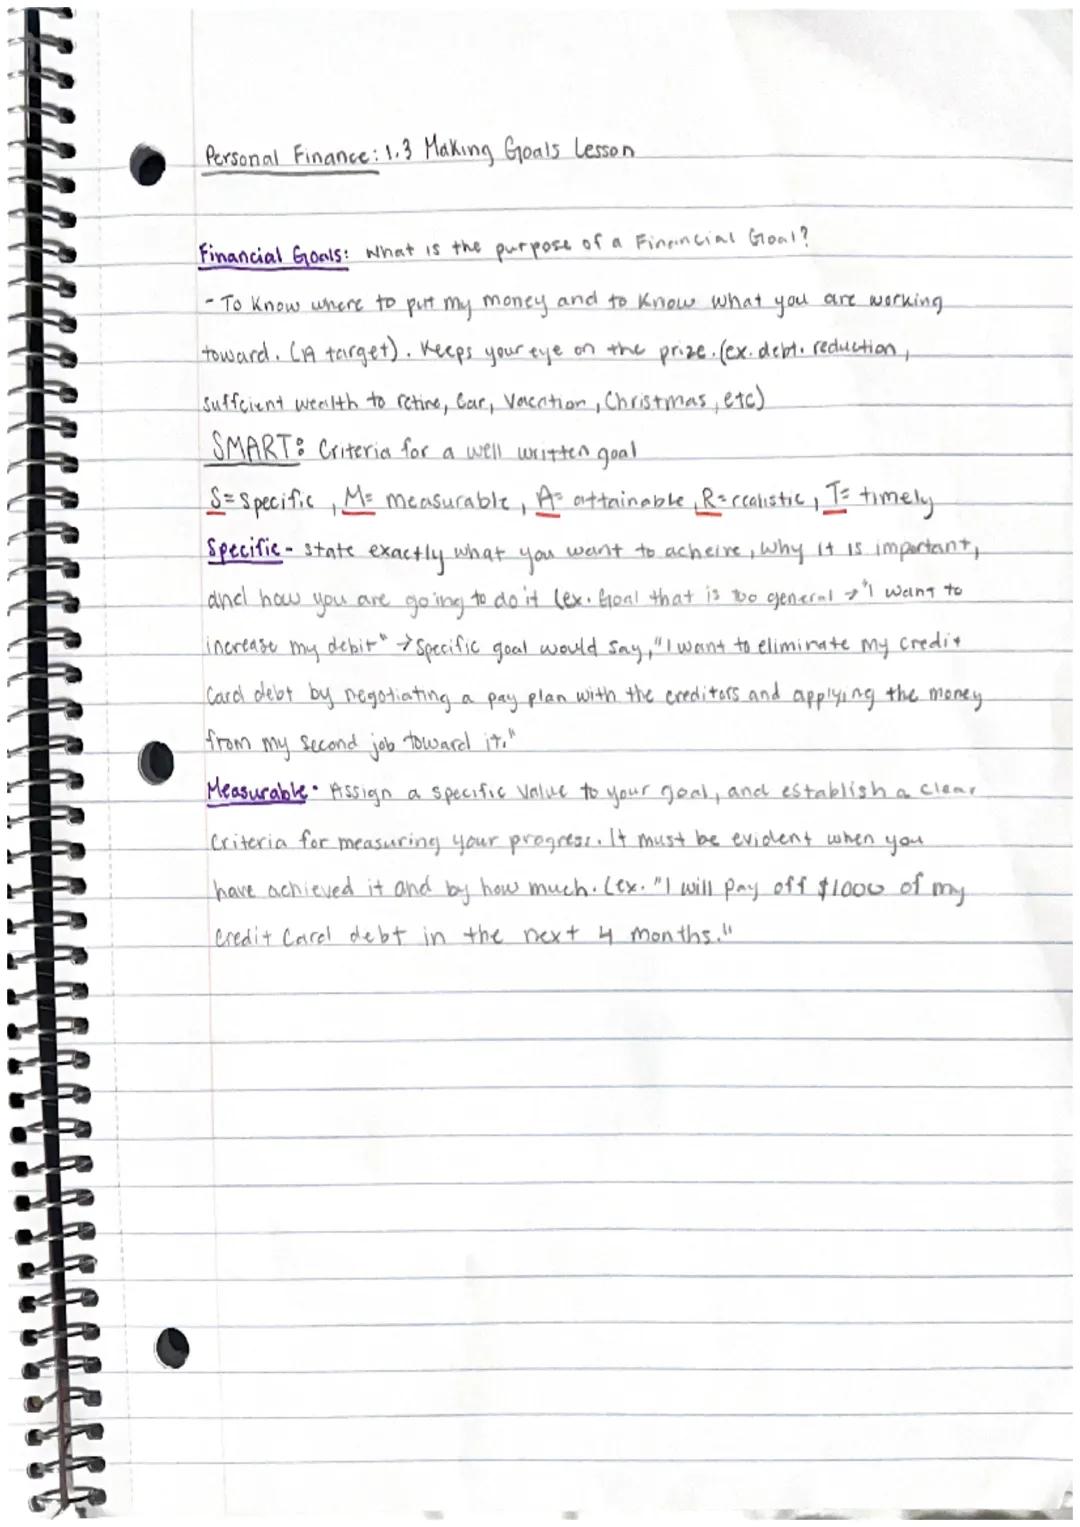 Personal Finance: 1.3 Making Goals Lesson
Financial Goals: What is the purpose of a Financial Goal?
- To Know where to put my money and to Know what you are working
toward. (A target). Keeps your eye on the prize. (ex. debt. reduction,
suffcient wealth to retire, Car, Vacation, Christmas, etc)
SMART: Criteria for a well written goal
S= Specific, M= measurable, A= attainable, R= realistic, T= timely
Specific - state exactly what you want to acheive, Why it is important,
and how you are going to do it (ex. Goal that is too general → "I want to
increase my debit" → Specific goal would say, "I want to eliminate my credit
Card debt by negotiating a pay plan with the creditors and applying the money
from my second job toward it."
Measurable - Assign a specific value to your goal, and establish a clear
Criteria for measuring your progress. It must be evident when you
have achieved it and by how much. (ex. "I will pay off $1000 of my
Credit Card debt in the next 4 months."